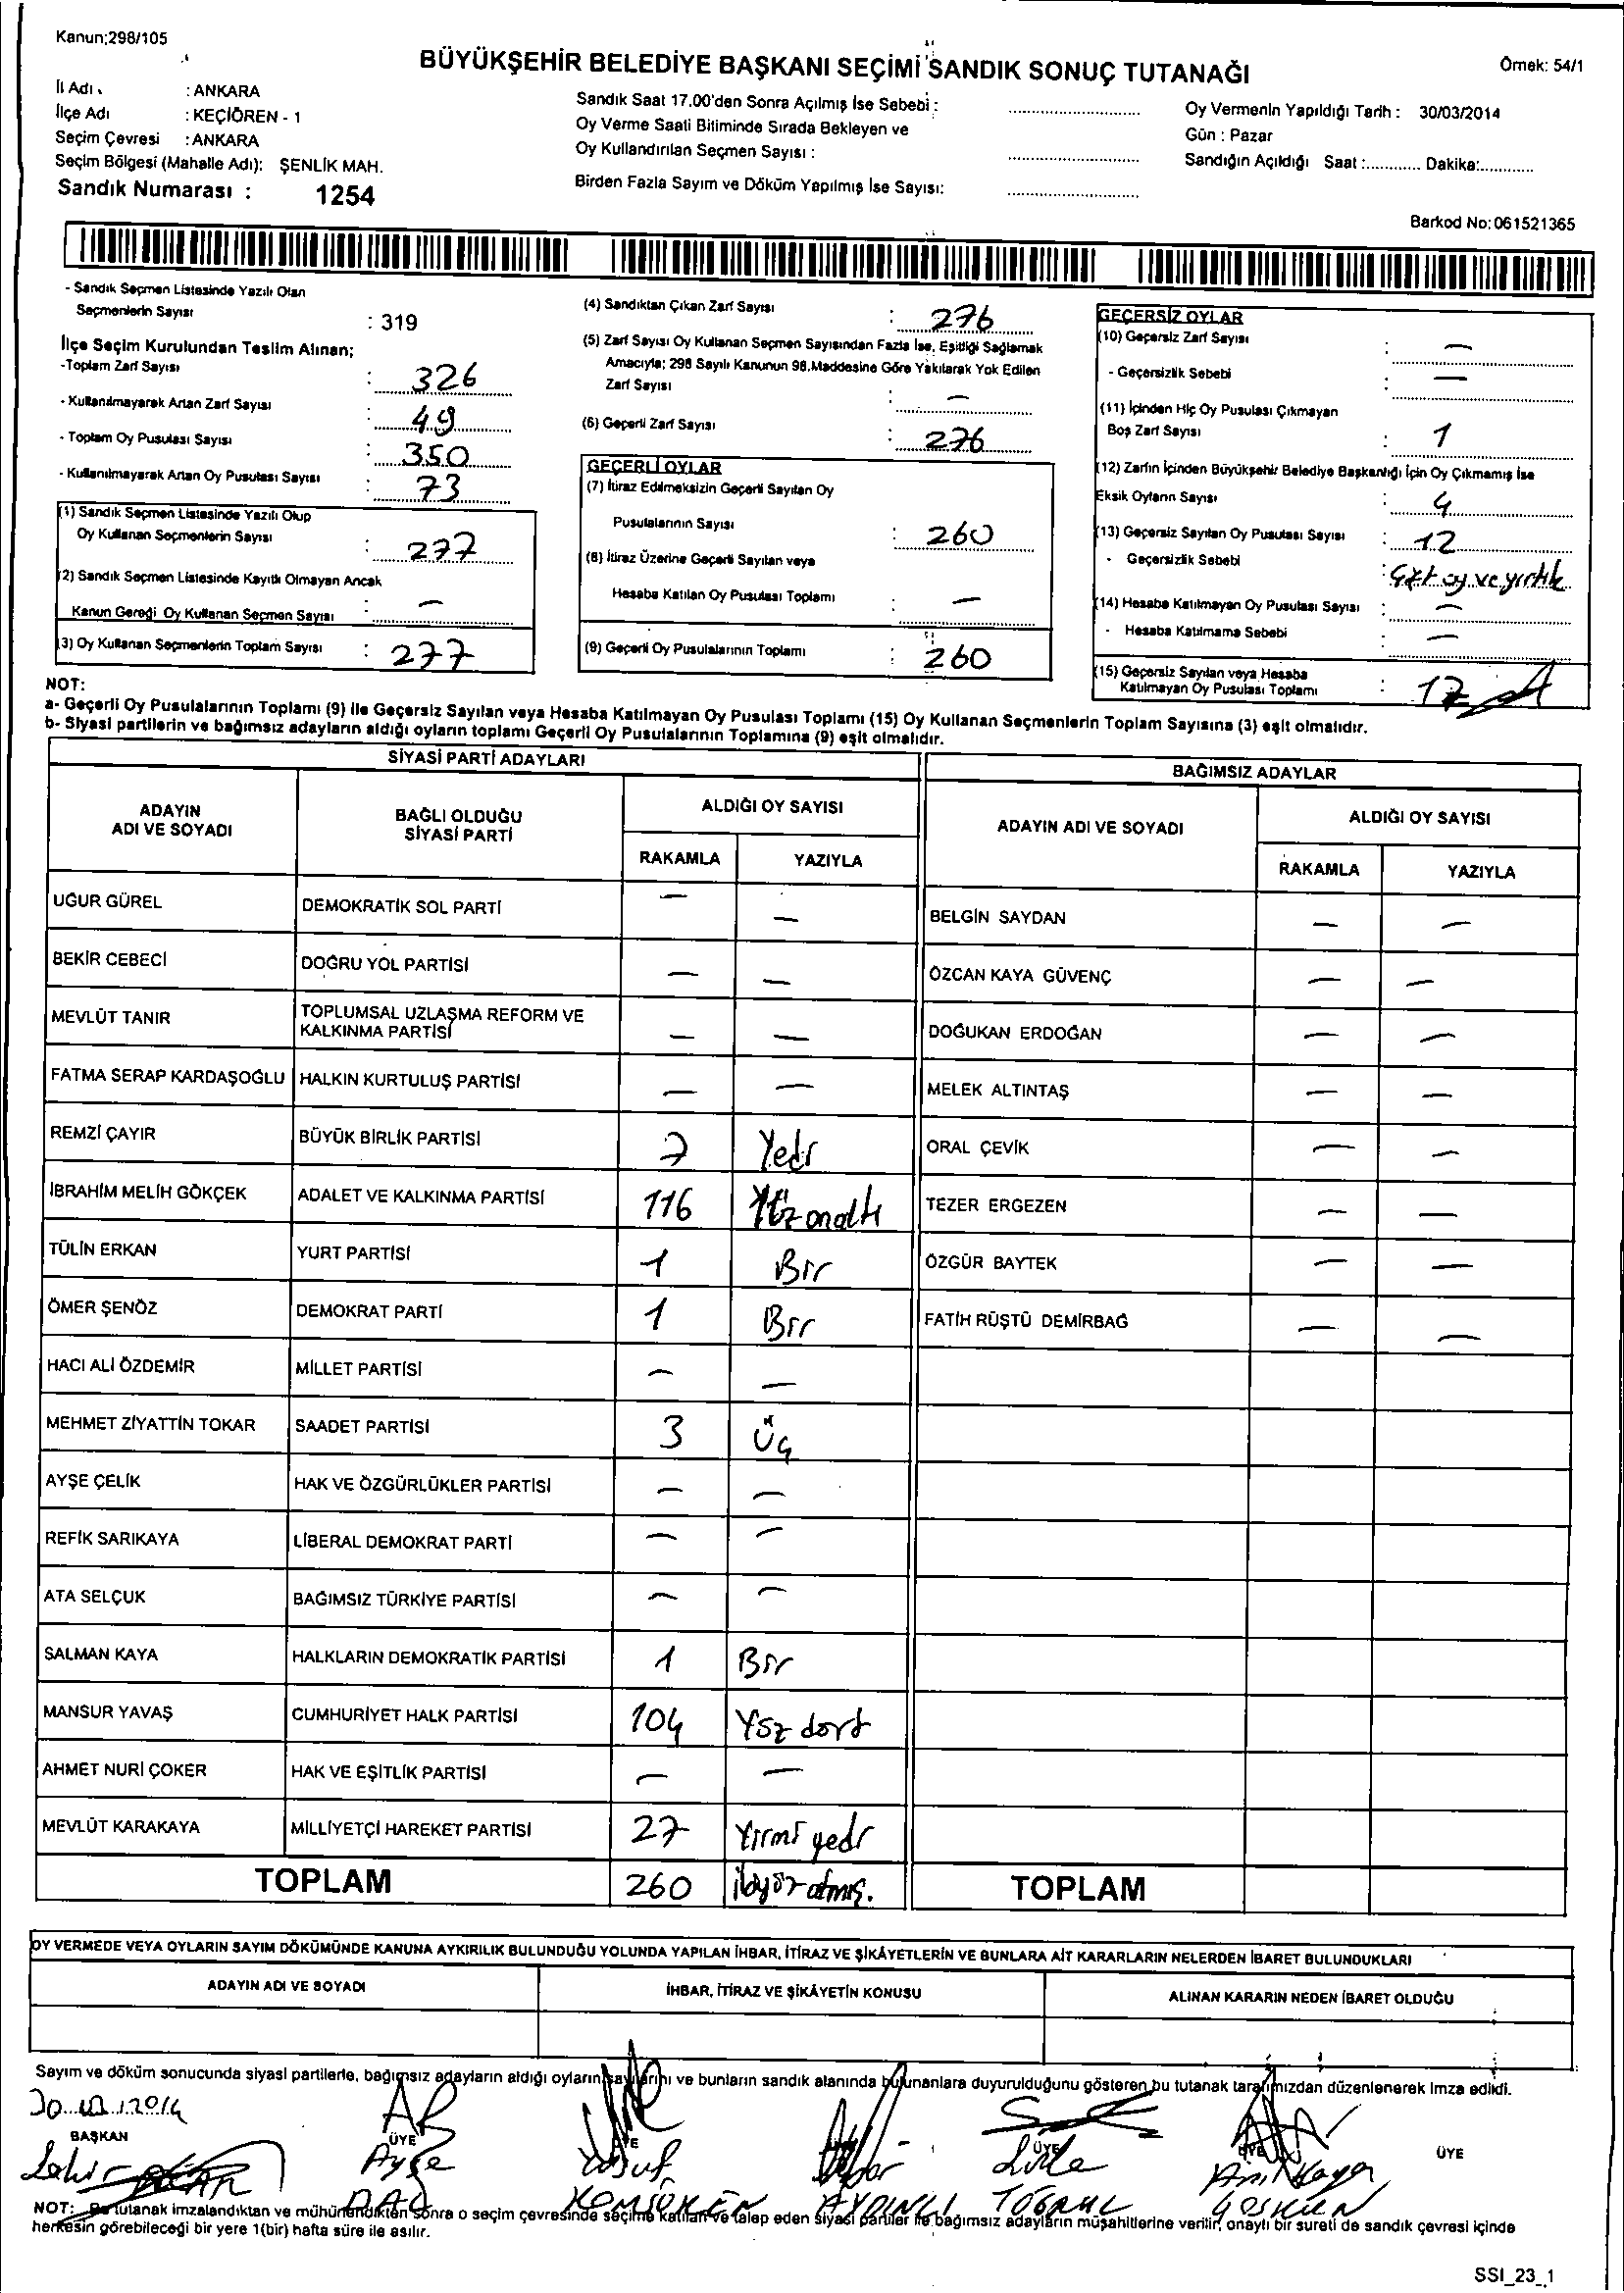 Kanun;298/105
BÜYÜKŞEHİR BELEDİYE BAŞKANI SEÇİMİ SANDIK SONUÇ TUTANAĞI
Örnek: 54/1
İl Adı : ANKARA
İlçe Adı : KEÇİÖREN - 1
Seçim Çevresi : ANKARA
Seçim Bölgesi (Mahalle Adı): ŞENLİK MAH.
Sandık Numarası : 1254
Sandık Saat 17.00'den Sonra Açılmış İse Sebebi :
Oy Verme Saati Bitiminde Sırada Bekleyen ve
Oy Kullandırılan Seçmen Sayısı :
Birden Fazla Sayım ve Döküm Yapılmış İse Sayısı:
Oy Vermenin Yapıldığı Tarih : 30/03/2014
Gün : Pazar
Sandığın Açıldığı Saat :............ Dakika:............
Barkod No:061521365
- Sandık Seçmen Listesinde Yazılı Olan
Seçmenlerin Sayısı : 319
İlçe Seçim Kurulundan Teslim Alınan;
-Toplam Zarf Sayısı : 326
- Kullanılmayarak Artan Zarf Sayısı : 49
- Toplam Oy Pusulası Sayısı : 350
- Kullanılmayarak Artan Oy Pusulası Sayısı : 73
(1) Sandık Seçmen Listesinde Yazılı Olup
Oy Kullanan Seçmenlerin Sayısı : 277
(2) Sandık Seçmen Listesinde Kayıtlı Olmayan Ancak
Kanun Gereği Oy Kullanan Seçmen Sayısı : —
(3) Oy Kullanan Seçmenlerin Toplam Sayısı : 277
(4) Sandıktan Çıkan Zarf Sayısı : 276
(5) Zarf Sayısı Oy Kullanan Seçmen Sayısından Fazla İse, Eşitliği Sağlamak
Amacıyla; 298 Sayılı Kanunun 98.Maddesine Göre Yakılarak Yok Edilen
Zarf Sayısı : —
(6) Geçerli Zarf Sayısı : 276
GEÇERLİ OYLAR
(7) İtiraz Edilmeksizin Geçerli Sayılan Oy
Pusulalarının Sayısı : 260
(8) İtiraz Üzerine Geçerli Sayılan veya
Hesaba Katılan Oy Pusulası Toplamı : —
(9) Geçerli Oy Pusulalarının Toplamı : 260
GEÇERSİZ OYLAR
(10) Geçersiz Zarf Sayısı : —
- Geçersizlik Sebebi : —
(11) İçinden Hiç Oy Pusulası Çıkmayan
Boş Zarf Sayısı : 1
(12) Zarfın İçinden Büyükşehir Belediye Başkanlığı İçin Oy Çıkmamış İse
Eksik Oyların Sayısı : 4
(13) Geçersiz Sayılan Oy Pusulası Sayısı : 12
- Geçersizlik Sebebi : Çift oy ve yırtık
(14) Hesaba Katılmayan Oy Pusulası Sayısı : —
- Hesaba Katılmama Sebebi : —
(15) Geçersiz Sayılan veya Hesaba
Katılmayan Oy Pusulası Toplamı : 17
NOT:
a- Geçerli Oy Pusulalarının Toplamı (9) ile Geçersiz Sayılan veya Hesaba Katılmayan Oy Pusulası Toplamı (15) Oy Kullanan Seçmenlerin Toplam Sayısına (3) eşit olmalıdır.
b- Siyasi partilerin ve bağımsız adayların aldığı oyların toplamı Geçerli Oy Pusulalarının Toplamına (9) eşit olmalıdır.
SİYASİ PARTİ ADAYLARI
ADAYIN ADI VE SOYADI BAĞLI OLDUĞU SİYASİ PARTİ ALDIĞI OY SAYISI
RAKAMLA YAZIYLA
UĞUR GÜREL DEMOKRATİK SOL PARTİ — —
BEKİR CEBECİ DOĞRU YOL PARTİSİ — —
MEVLÜT TANIR TOPLUMSAL UZLAŞMA REFORM VE KALKINMA PARTİSİ — —
FATMA SERAP KARDAŞOĞLU HALKIN KURTULUŞ PARTİSİ — —
REMZİ ÇAYIR BÜYÜK BİRLİK PARTİSİ 7 Yedi
İBRAHİM MELİH GÖKÇEK ADALET VE KALKINMA PARTİSİ 116 Yüz onaltı
TÜLİN ERKAN YURT PARTİSİ 1 Bir
ÖMER ŞENÖZ DEMOKRAT PARTİ 1 Bir
HACI ALİ ÖZDEMİR MİLLET PARTİSİ — —
MEHMET ZİYATTİN TOKAR SAADET PARTİSİ 3 Üç
AYŞE ÇELİK HAK VE ÖZGÜRLÜKLER PARTİSİ — —
REFİK SARIKAYA LİBERAL DEMOKRAT PARTİ — —
ATA SELÇUK BAĞIMSIZ TÜRKİYE PARTİSİ — —
SALMAN KAYA HALKLARIN DEMOKRATİK PARTİSİ 1 Bir
MANSUR YAVAŞ CUMHURİYET HALK PARTİSİ 104 Yüz dört
AHMET NURİ ÇOKER HAK VE EŞİTLİK PARTİSİ — —
MEVLÜT KARAKAYA MİLLİYETÇİ HAREKET PARTİSİ 27 Yirmi yedi
TOPLAM 260 ikiyüz atmış.
BAĞIMSIZ ADAYLAR
ADAYIN ADI VE SOYADI ALDIĞI OY SAYISI
RAKAMLA YAZIYLA
BELGİN SAYDAN — —
ÖZCAN KAYA GÜVENÇ — —
DOĞUKAN ERDOĞAN — —
MELEK ALTINTAŞ — —
ORAL ÇEVİK — —
TEZER ERGEZEN — —
ÖZGÜR BAYTEK — —
FATİH RÜŞTÜ DEMİRBAĞ — —
TOPLAM
OY VERMEDE VEYA OYLARIN SAYIM DÖKÜMÜNDE KANUNA AYKIRILIK BULUNDUĞU YOLUNDA YAPILAN İHBAR, İTİRAZ VE ŞİKÂYETLERİN VE BUNLARA AİT KARARLARIN NELERDEN İBARET BULUNDUKLARI
ADAYIN ADI VE SOYADI İHBAR, İTİRAZ VE ŞİKÂYETİN KONUSU ALINAN KARARIN NEDEN İBARET OLDUĞU
Sayım ve döküm sonucunda siyasi partilerle, bağımsız adayların aldığı oyların sayılarını ve bunların sandık alanında bulunanlara duyurulduğunu gösteren bu tutanak tarafımızdan düzenlenerek imza edildi.
BAŞKAN ÜYE ÜYE ÜYE ÜYE ÜYE
Ayşe Yusuf Anıl Kaya
DAĞ AYDINLI TOĞRUL COŞKUN
NOT: Bu tutanak imzalandıktan ve mühürlendikten sonra o seçim çevresinde seçime katılan ve talep eden siyasi partiler ile bağımsız adayların müşahitlerine verilir, onaylı bir sureti de sandık çevresi içinde
herkesin görebileceği bir yere 1(bir) hafta süre ile asılır.
SSI_23_1